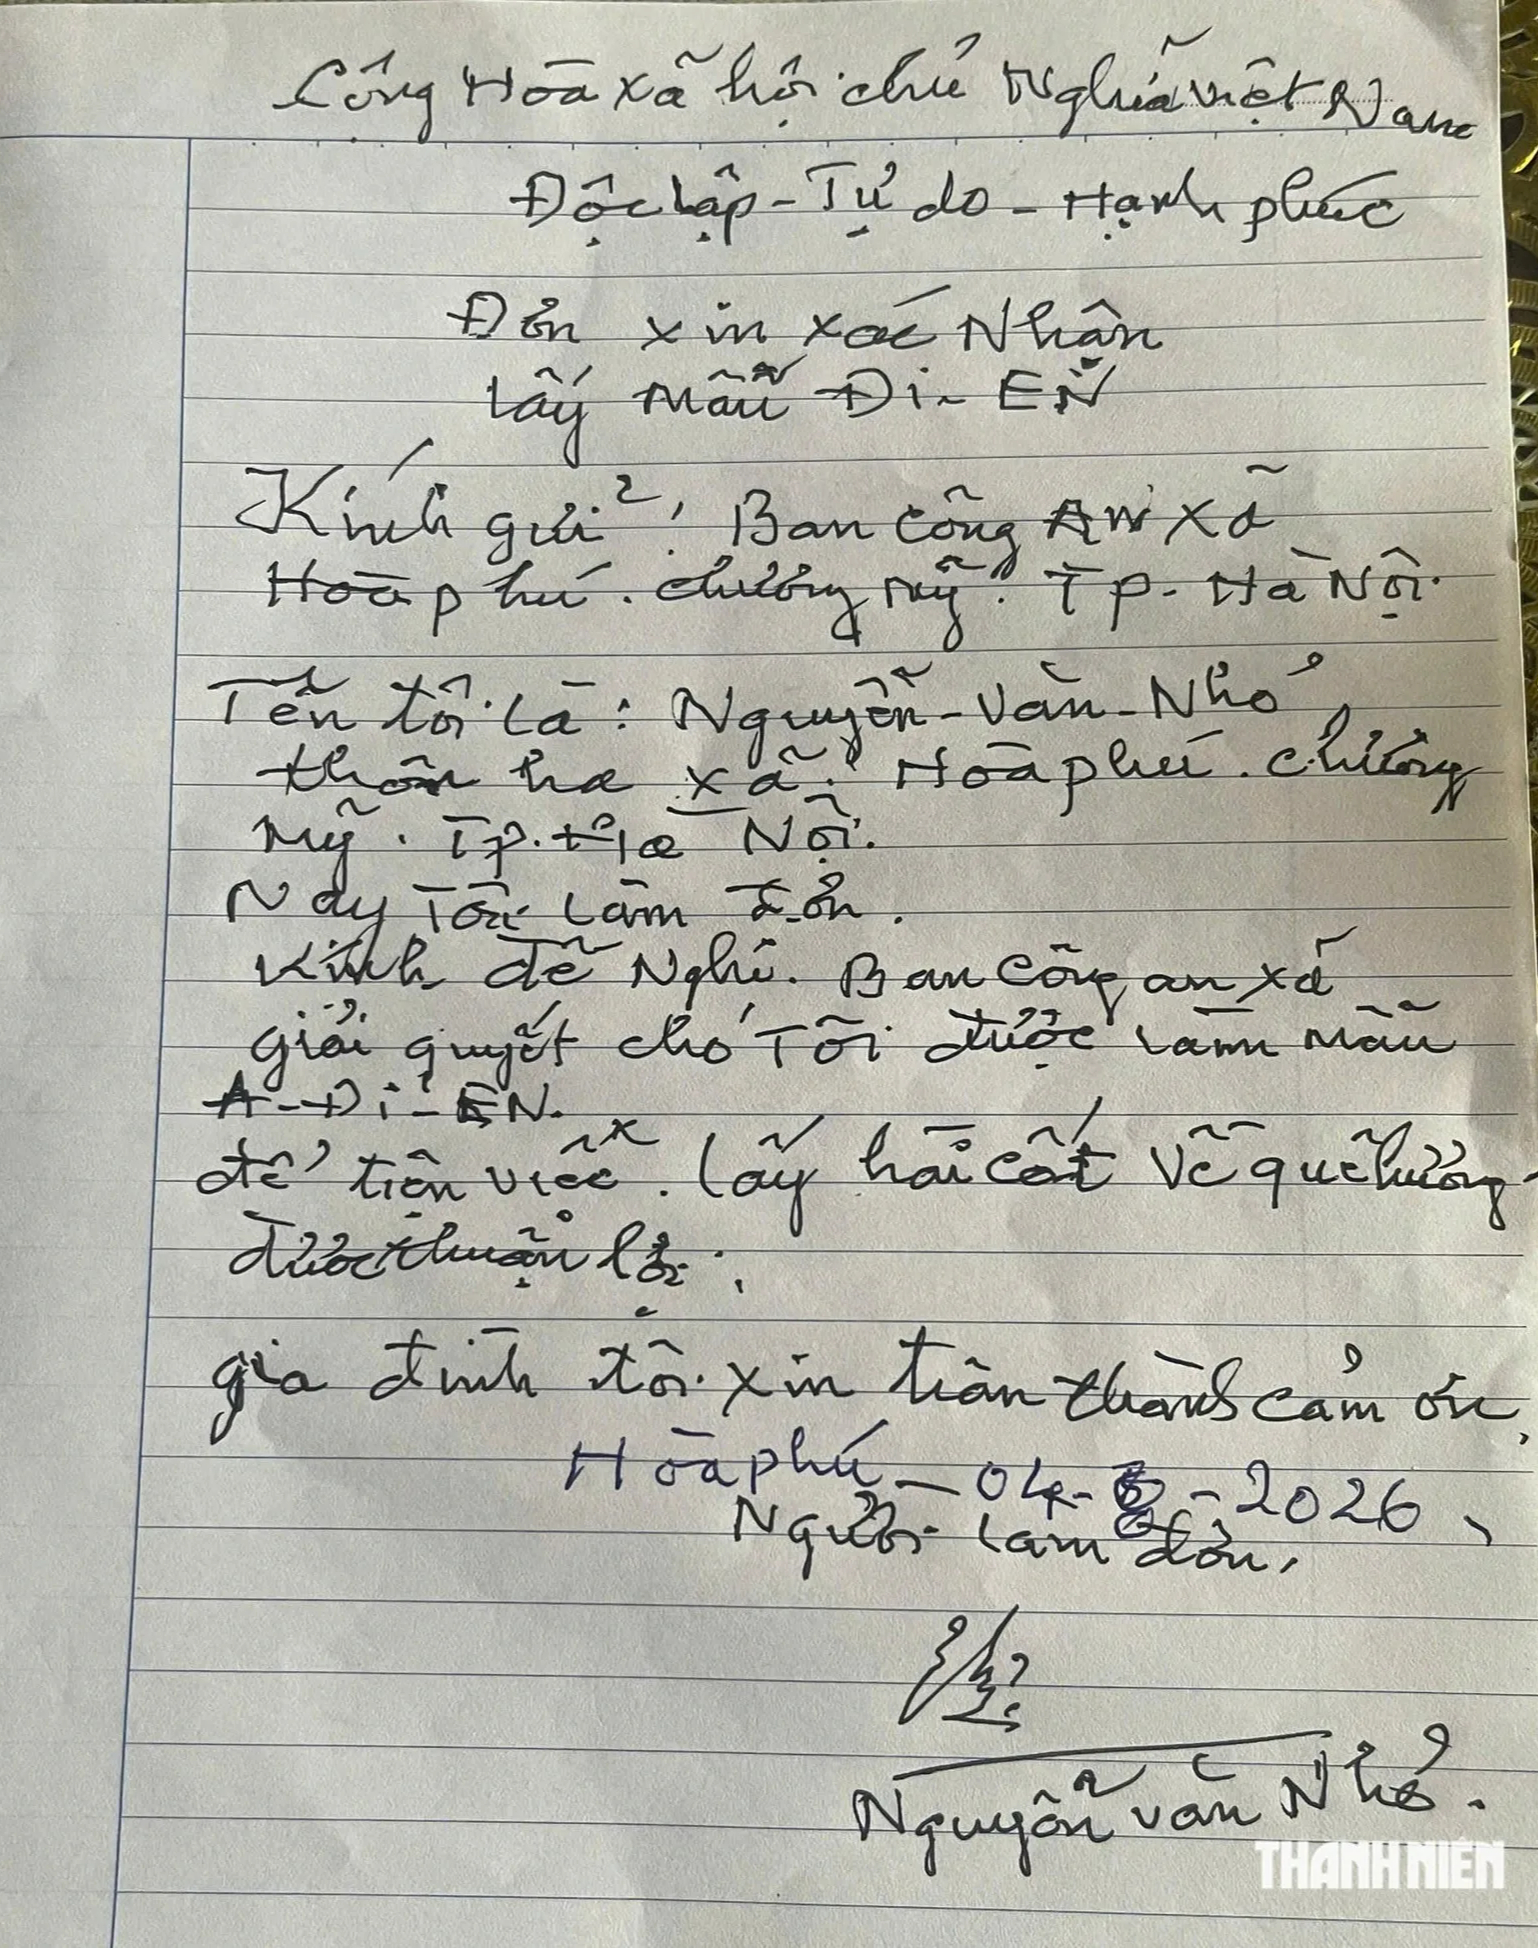 Cộng Hòa xã hội chủ Nghĩa việt Nam
Độc lập - Tự do - Hạnh phúc
Đơn xin xác Nhận
lấy mẫu Đi - EN
Kính gửi: Ban công AN xã
Hòa phú. chương mỹ. TP. Hà Nội.
Tên tôi là: Nguyễn - Văn - Nhỏ
thôn hạ xã: Hòa phú. chương
mỹ. Tp. Hà Nội.
Nay Tôi làm đơn.
Kính đề Nghị. Ban công an xã
giải quyết cho Tôi được làm mẫu
A - Đi - EN.
để tiện việc. lấy hài cốt về quê hương
được thuận lợi.
gia đình tôi xin trân thành cảm ơn,
Hòa phú - 04 - - 2026
Người làm đơn,
Nguyễn văn Nhỏ.
THANH NIÊN